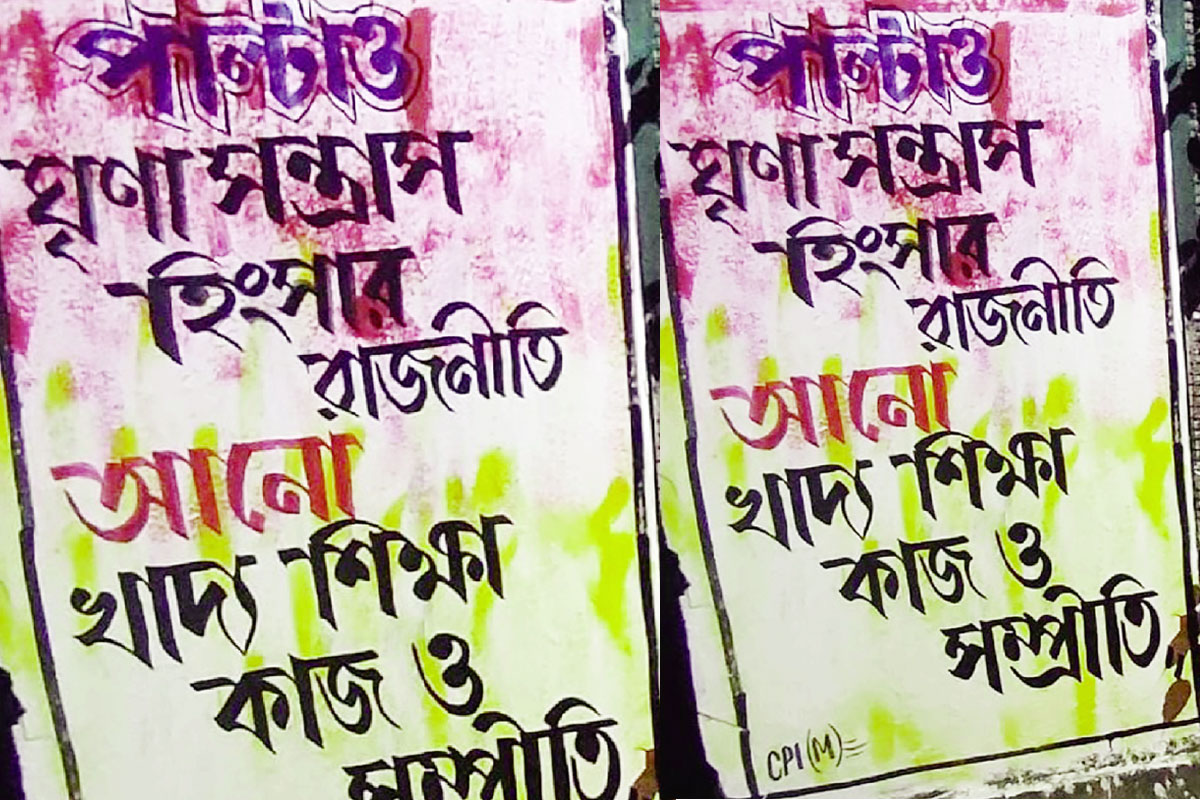 পাল্টাও
ঘৃণা সন্ত্রাস
হিংসার
রাজনীতি
আনো
খাদ্য শিক্ষা
কাজ ও
সম্প্রীতি
পাল্টাও
ঘৃণা সন্ত্রাস
হিংসার
রাজনীতি
আনো
খাদ্য শিক্ষা
কাজ ও
সম্প্রীতি
CPI (M)